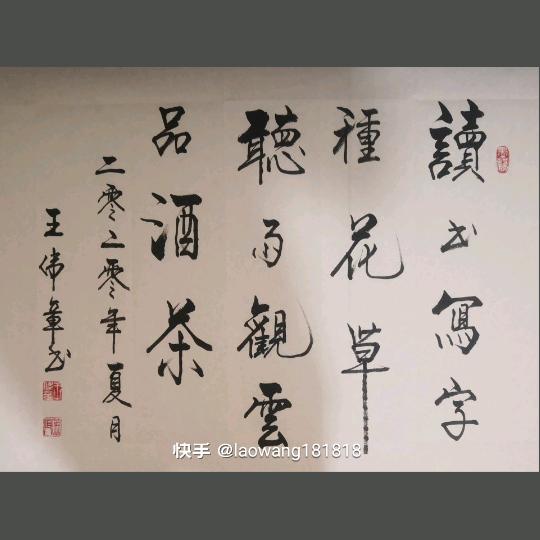 讀书寫字
種花草
聽雨觀雲
品酒茶
二零二零年夏月
王偉章书
快手 @laowang181818